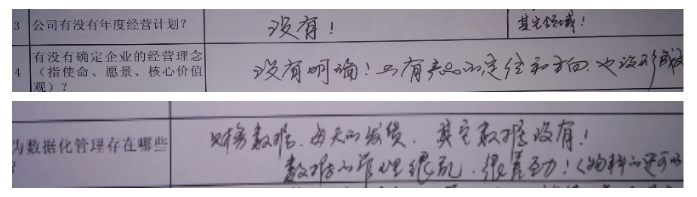 3 公司有没有年度经营计划? 没有! 其它领域!
4 有没有确定企业的经营理念
(指使命、愿景、核心价值
观)? 没有明确!只有产品的定位和方向,也没形成
为数据化管理存在哪些 财务数据、每天的发货,其它数据没有!
数据的管理很乱,很差劲!(物料的还可以